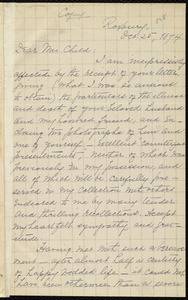 Copy
Roxbury,
Oct. 25, 1874
Dear Mrs. Child:
I am inexpressibly
affected by the receipt of your letter
giving (what I was so anxious
to obtain) the particulars of the illness
and death of your beloved husband
and my honored friend, and en-
closing two photographs of him and
one of yourself — excellent counterfeit
presentments, neither of which was
previously in my possession, and
all of which will be carefully pre-
served in my collection with others
endeared to me by many tender
and thrilling recollections. Accept
my heartfelt sympathy and grat-
itude.
Having met with such a bereave-
ment — after almost half a century
of happy wedded life — it could not
have been otherwise than a severe